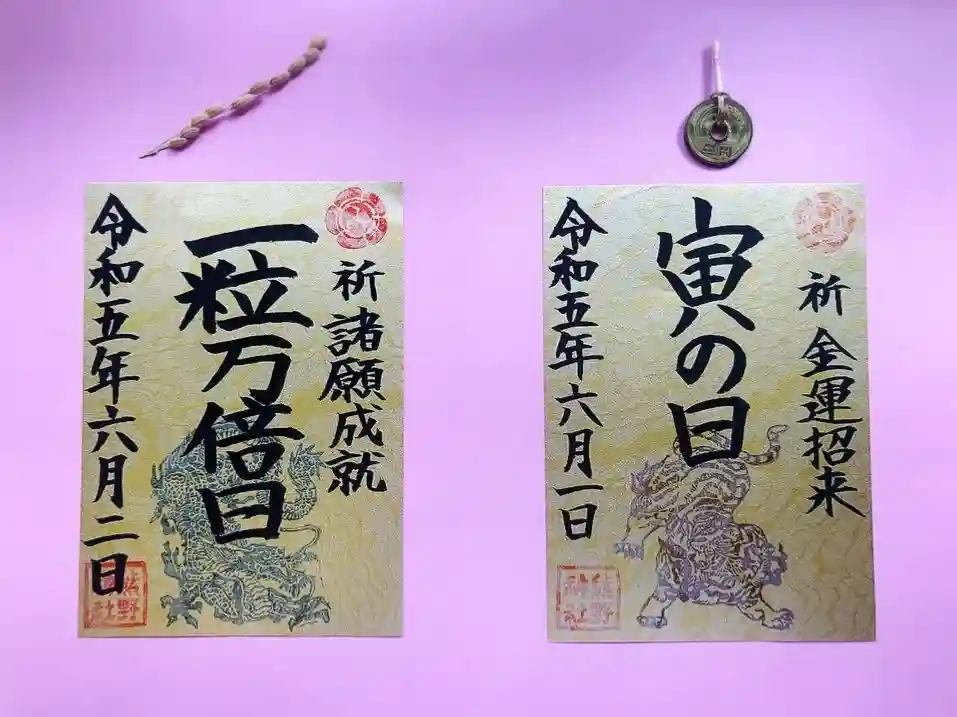 祈 諸願成就
一粒万倍日
令和五年六月二日
熊野
社
祈 金運招来
寅の日
令和五年六月一日
熊野
神社
五円